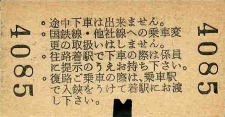 4085
○途中下車は出来ません。
○国鉄線・他社線への乗車変
更の取扱いはしません。
○往路着駅で下車の際は係員
に提示のうえお持ち下さい。
○復路ご乗車の際は、乗車駅
で入鋏をうけて着駅にお渡
し下さい。
4085